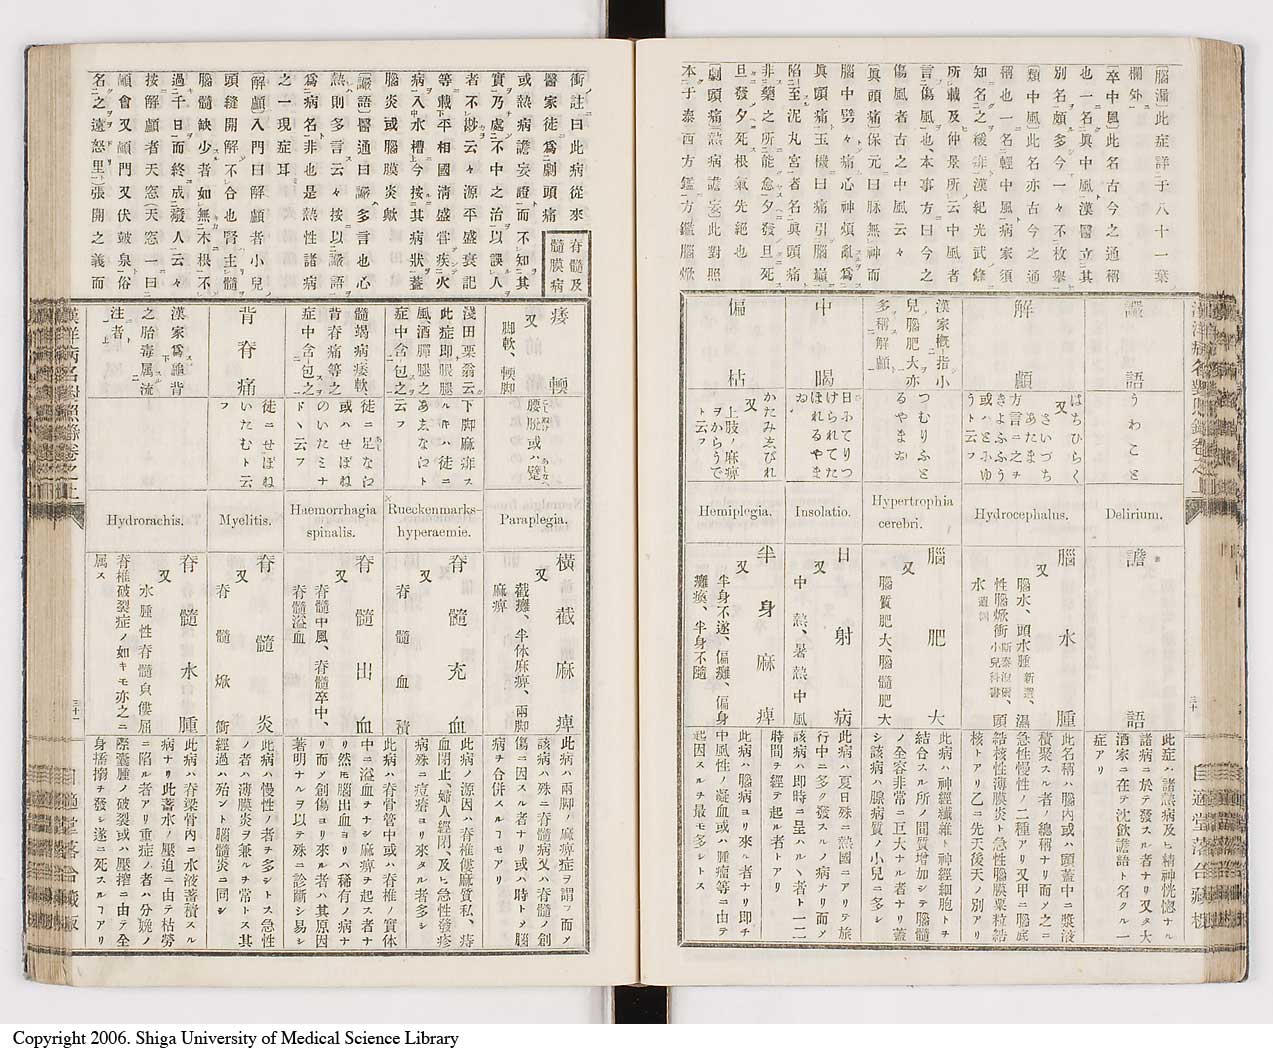 〔腦漏〕此症詳ニ于八十一葉
欄外ニ
〔卒中風〕此名古今之通稱
也一名眞中風漢醫立其
別名頗多今一々不枚擧
〔類中風〕此名亦古今之通
稱也一名輕中風病家須
知名之緩痱漢紀光武條
所載及仲景所云中風者
言傷風也本事方曰今之
傷風者古之中風云々
〔眞頭痛〕保元曰脉無神而
腦中劈々痛心神煩亂爲
眞頭痛玉機曰痛引腦巓
陷至泥丸宮者名眞頭痛
非藥之所能愈夕發旦死
旦發夕死根氣先絕也
〔劇頭痛〕熱病譫妄此對照
本于泰西方鑑方鑑腦焮
譫語
解顱
漢家概指小
兒腦肥大亦
多稱解顱
中暍
偏枯
うわこと
はちひらく
又さいづち
あたま
方言ニ之チ
きよふふう
或ハとふゆ
うト云フ
つむりふと
るやまゐ
日ふてりつ
けられてた
ほれるやま
ゐ
かたみゑびれ
又
上肢ノ麻痹
ヲからうで
ト云フ
Delirium.
Hydrocephalus.
Hypertrophia
cerebri.
Insolatio.
Hemiplegia.
譫語
腦水腫
又
腦水、頭水腫新選、濕
性腦焮衝 頭
水
腦肥大
又
腦質肥大、腦髓肥大
日射病
又
中熱、暑熱中風
半身麻痺
又
半身不遂、偏癱、偏身
癱瘓、半身不隨
此症ハ諸熱病及ヒ精神恍惚ナル
諸病ニ於テ發スル者ナリ又タ大
酒家ニ在テ沈飲譫語ト名クル一
症アリ
此名稱ハ腦內或ハ頭蓋中ニ漿液
積聚スル者ノ總稱ナリ而メ之ニ
急性慢性ノ二種アリ又甲ニ腦底
結核性薄膜炎ト急性腦膜粟粒結
核トアリ乙ニ先天後天ノ別アリ
此病ハ神經纖維ト神經細胞トヲ
結合スル所ノ間質增加シテ腦髓
ノ全容非常ニ巨大ナル者ナリ蓋
シ該病ハ腺病質ノ小兒ニ多シ
此病ハ夏日殊ニ熱國ニアリテ旅
行中ニ多ク發スルノ病ナリ而メ
該病ハ卽時ニ呈ハルヽ者ト一二
時間ヲ經テ起ル者トアリ
此病ハ腦病ヨリ來ル者ナリ卽チ
中風性ノ凝血或ハ腫瘤等ニ由テ
起因スルヲ最モ多シトス
三十
適堂蒸合藏版
衝註曰此病從來
醫家徒爲劇頭痛
或熱病譫妄證而不知其
實乃處不中之治以誤人
者不尠云々源平盛衰記
等載平相國清盛嘗疾火
病入水槽中今按其病狀蓋
腦炎或腦膜炎歟
〔讝語〕醫通曰讝多言也心
熱則多言云々按以讝語
爲病名非也是熱性諸病
之一現症耳
〔解顱〕入門曰解顱者小兒
頭縫開解不合也腎主髓
腦髓缺少者如無木根不
過千日而終成癈人云々
按解顱者天窓(天窓一曰
顖會又顖門又伏皷泉俗
名之遠怒里)張開之義而
脊髓及
髓膜病
痿軟
又
脚軟、輭脚
淺田栗翁云
此症即眼腿
風酒脚腿之
症中含包之
髓竭病(痿軟
背脊痛等之
症中含包之
背脊痛
漢家爲龜背
之胎毒屬流
注者
腰脫或ハ躄
下脚麻痹ス
ルヰハ徒ニ
あゑなゐト
云フ
徒ニ足なゐ
或ハせぼね
のいたミナ
ドヽ云フ
徒ニせぼね
いたむト云
フ
Paraplegia.
Rueckenmarks-
hyperaemie.
Haemorrhagia
spinalis.
Myelitis.
Hydrorachis.
橫截麻痺
又
截癱、半休麻痹、兩脚
麻痹
脊髓充血
又
脊髓血積
脊髓出血
又
脊髓中風、脊髓卒中、
脊髓溢血
脊髓炎
又
脊髓焮衝
脊髓水腫
又
水腫性脊髓臾僂屈
脊椎破裂症ノ如キモ亦之ニ
属ス
此病ハ兩脚ノ麻痹症ヲ謂フ而メ
該病ハ殊ニ脊髓病又ハ脊髓ノ創
傷ニ因スル者ナリ或ハ時トメ腦
病チ合併スルヿモアリ
此病ノ源因ハ脊椎僂麻質私、痔
血閉止、婦人經閉、及ヒ急性發疹
病殊ニ痘瘡ヨリ來タル者多シ
此病ハ脊骨管中或ハ脊椎ノ實休
中ニ溢血ヲナシ麻痹チ起ス者ナ
リ然モ腦出血ヨリハ稀有ノ病ナ
リ而メ創傷ヨリ來ル者ハ其原因
著明ナルヲ以テ殊ニ診斷シ易シ
此病ハ慢性ノ者チ多シトス急性
ノ者ハ薄膜炎ヲ兼ルヲ常トス其
經過ハ殆ント腦髓炎ニ同シ
此病ハ脊梁骨內ニ水液蓄積スル
病ナリ此蓄水ノ壓迫ニ由テ枯勞
ニ陷ル者アリ重症ノ者ハ分娩ノ
際囊腫ノ破裂或ハ壓搾ニ由テ全
身搐搦ヲ發シ遂ニ死スルヿアリ
漢洋病名對照錄卷之上
三十一
Copyright 2006. Shiga University of Medical Science Library